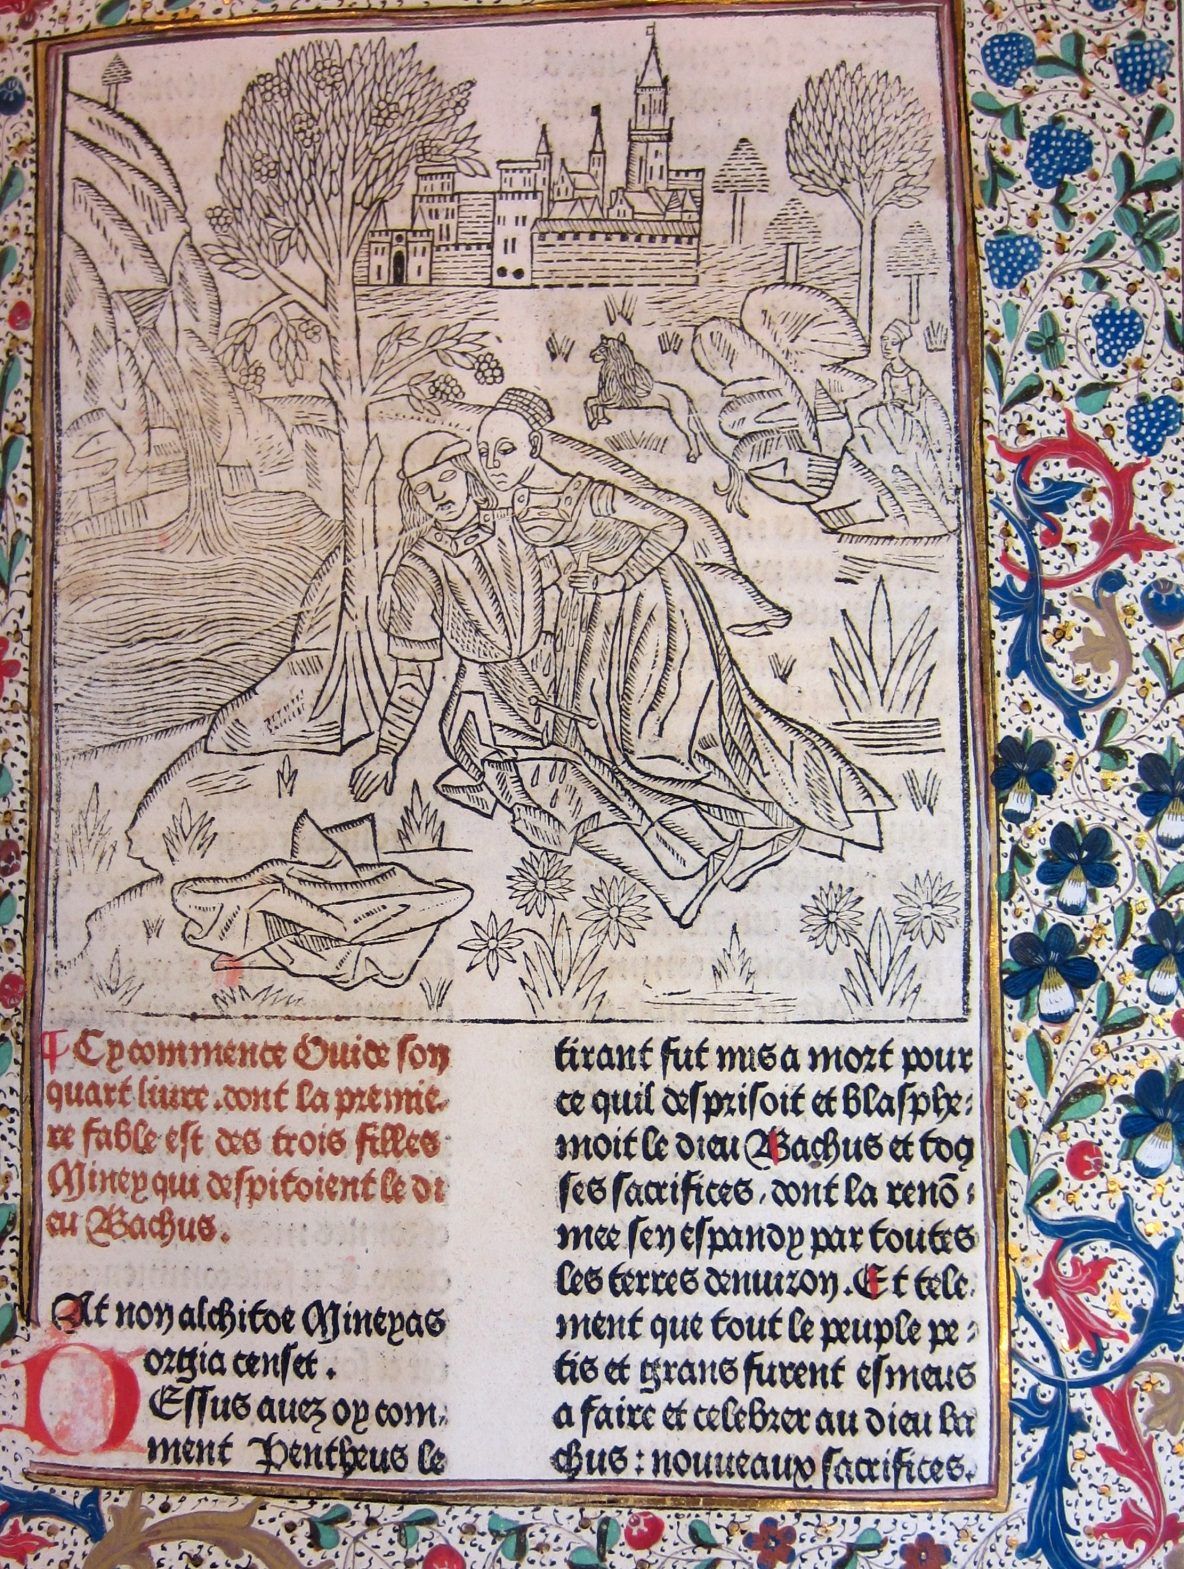 ¶ Cy commence Ouide son
quart liure . dont la premie-
re fable est des trois filles
Miney qui despitoient le di
eu Bachus .
At non alchitoe Mineyas
orgia censet .
DEssus auez oy com-
ment Pentheus le
tirant fut mis a mort pour
ce quil desprisoit et blasphe-
moit le dieu Bachus et toꝰ
ses sacrifices , dont la renō-
mee sen espandy par toutes
les terres denuiron . Et tele-
ment que tout le peuple pe-
tis et grans furent esmeus
a faire et celebrer au dieu ba
chus : nouueaux sacrifices .